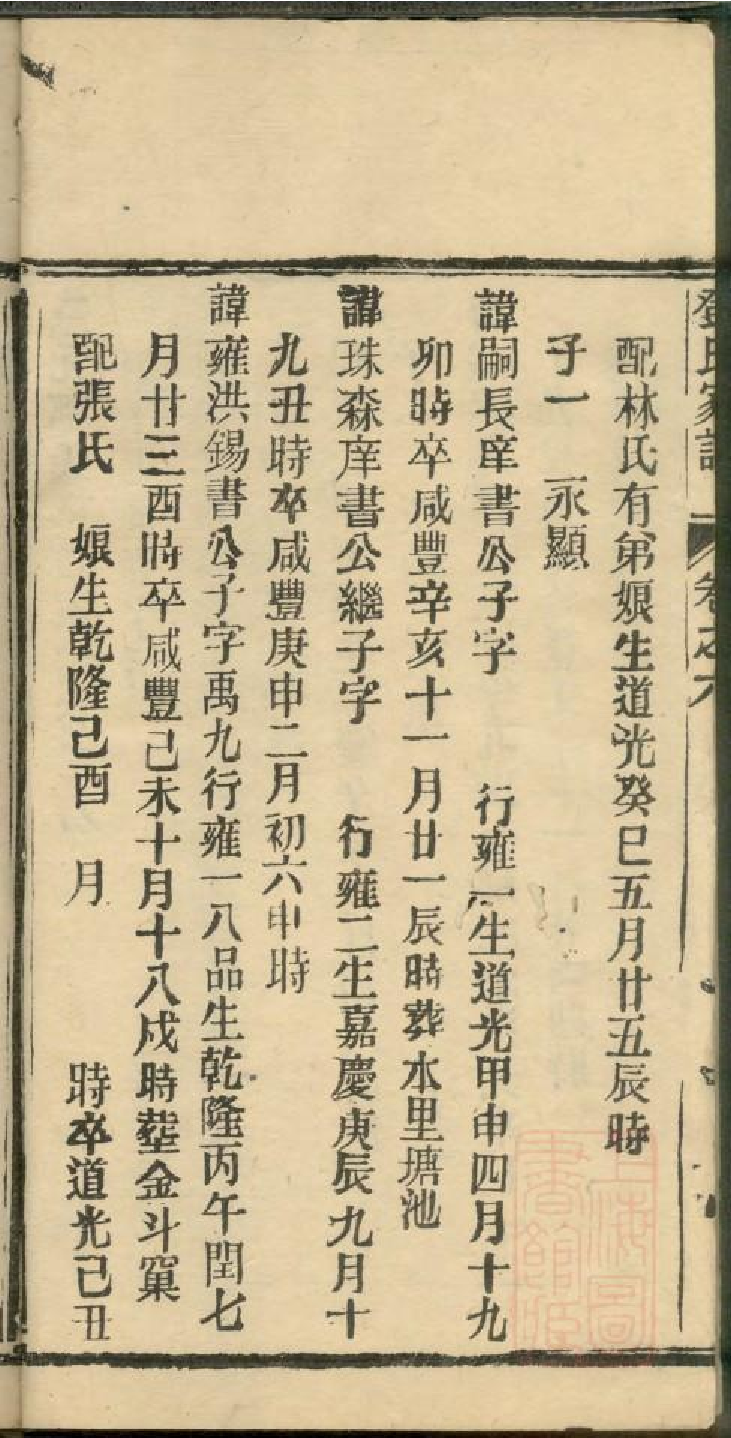 鄧氏家譜 卷之六
配林氏有第娘生道光癸巳五月廿五辰時
子一 永顯
諱嗣長庠書公子字 行雍一生道光甲申四月十九
卯時卒咸豐辛亥十一月廿一辰時葬水里塘池
諱珠森庠書公繼子字 行雍二生嘉慶庚辰九月十
九丑時卒咸豐庚申二月初六申時
諱雍洪錫書公子字禹九行雍一八品生乾隆丙午閏七
月廿三酉時卒咸豐己未十月十八戌時塟金斗窠
配張氏 娘生乾隆己酉 月 時卒道光己丑